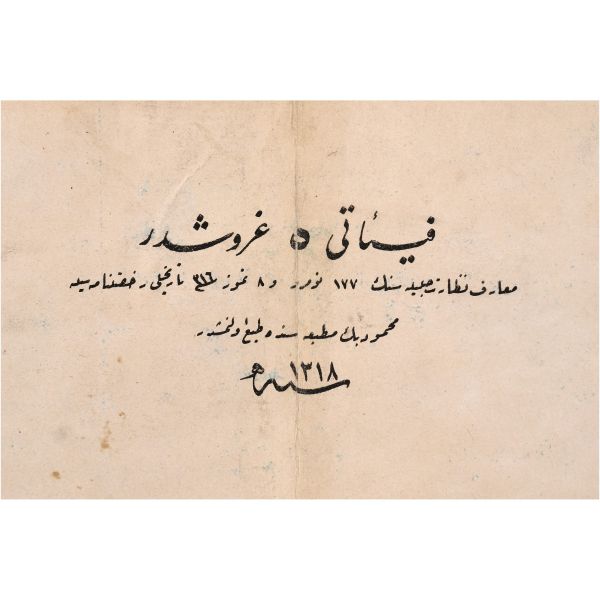 فیئاتی ٥ غروشدر
معارف نظارت جلیله سنك ١٧٧ نومرو و ٨ تموز ٣١٦ تاریخلی رخصتنامه سیله
محمود بك مطبعه سنده طبع اولنمشدر
سنه ١٣١٨ ه